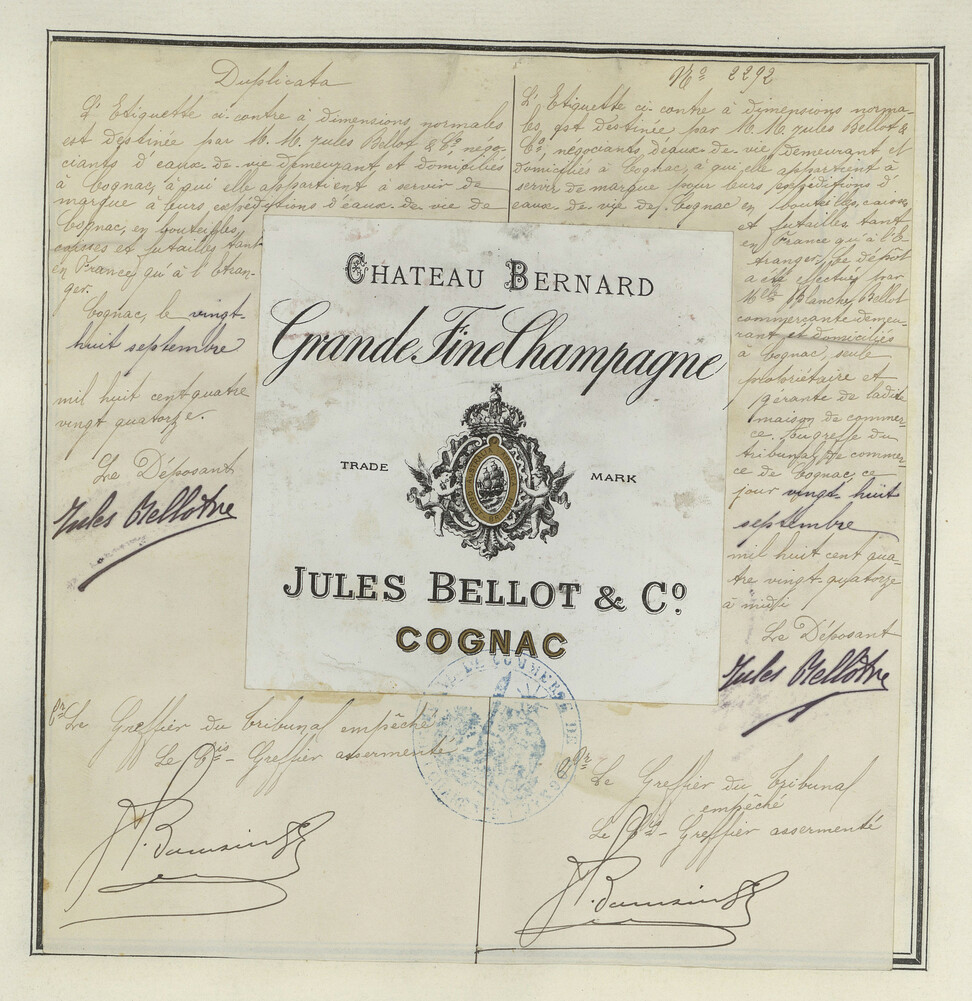 Duplicata
L'Etiquette ci-contre à dimensions normales
est destinée par M. M. Jules Bellot & Co négo-
ciants d'eaux-de-vie demeurant et domiciliés
à Cognac, à qui elle appartient à servir de
marque à leurs expéditions d'eaux-de-vie de
Cognac, en bouteilles,
caisses et futailles tant
en France qu'à l'étran-
ger.
Cognac, le vingt-
huit septembre
mil huit cent quatre
vingt quatorze.
Le Déposant
Jules Bellot
Pr Le Greffier du tribunal empêché
Le Cis-Greffier assermenté
No 2292
L'Etiquette ci-contre à dimensions norma-
les, est destinée par M. M. Jules Bellot &
Co, négociants d'eaux-de-vie demeurant et
domiciliés à Cognac, à qui elle appartient à
servir de marque pour leurs expéditions d'
eaux-de-vie de Cognac en bouteilles, caisses
et futailles tant
en France qu'à l'É-
tranger. Ce dépôt
a été effectué par
Blanche Bellot
commerçante demeu-
rant et domiciliée
à Cognac, seule
propriétaire et
gérante de ladite
maison de commer-
ce. Au greffe du
tribunal de commer-
ce de Cognac ce
jour vingt-huit
septembre
mil huit cent qua-
tre vingt-quatorze
à midi
Le Déposant
Jules Bellot
Pr Le Greffier du tribunal
empêché
Le Cis-Greffier assermenté
CHATEAU BERNARD
Grande Fine Champagne
TRADE MARK
JULES BELLOT & Co.
COGNAC
COMMERCE DE